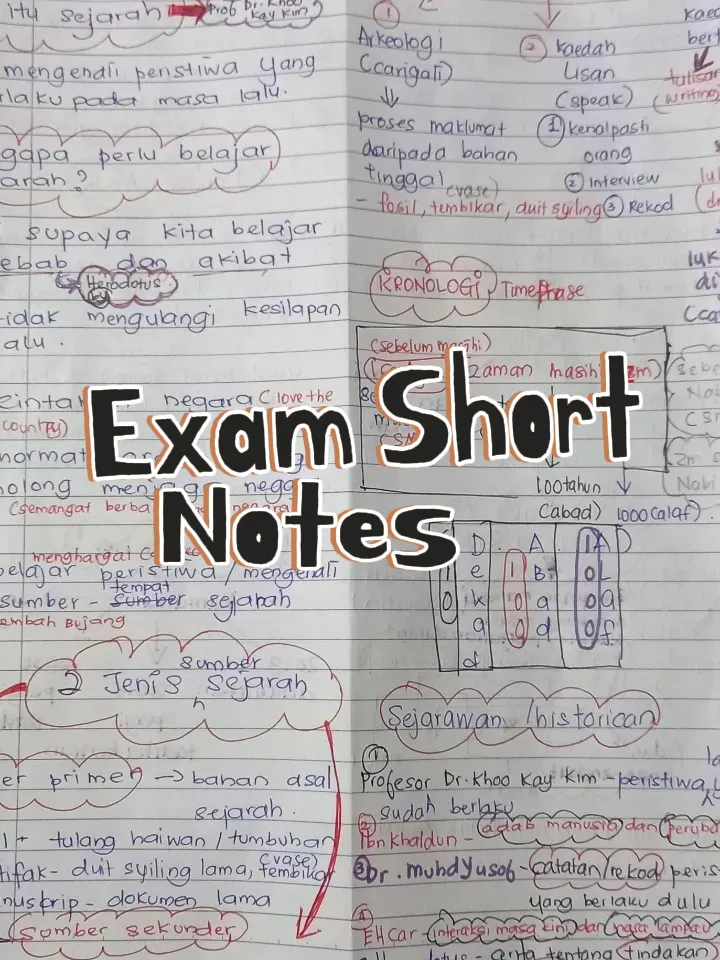 itu sejarah Prof Dr. Khoo Kay Kim
mengenali peristiwa yang
rlaku pada masa lalu.
gapa perlu belajar
arah?
supaya kita belajar
ebab dan akibat
Herodotus
tidak mengulangi kesilapan
alu.
eintai negara (love the
country)
hormat
olong menjaga nega
(semangat
menghargai
belajar peristiwa / mengenali
tempat
sumber - sumber sejarah
embah Bujang
2 Jenis sumber sejarah
er primer → bahan asal
sejarah.
tulang haiwan / tumbuhan
tifak - duit syiling lama, (vase) tembikar
nuskrip - dokumen lama
sumber sekunder
①
Arkeologi
(carigali)
proses maklumat
daripada bahan
tinggal (vase)
- fosil, tembikar, duit syiling
② kaedah
Lisan
(speak)
① kenalpasti
orang
② Interview
③ Rekod
kaed
bert
tulisan
(writing)
luk
di
KRONOLOGI Timephrase
(sebelum masihi)
zaman masihi
100 tahun
(abad) 1000 (alaf).
10 Dekad
100 Abad
1000 Alaf
Sejarawan / historican
①
Profesor Dr. Khoo Kay Kim - peristiwa
sudah berlaku
② Ibn Khaldun - adab manusia dan peruba
③ Dr. Muhd Yusof - catatan / rekod peris
yang berlaku dulu
④
EH Car - interaksi masa kini dan masa lampau
- cerita tentang tindakan
Exam Short
Notes